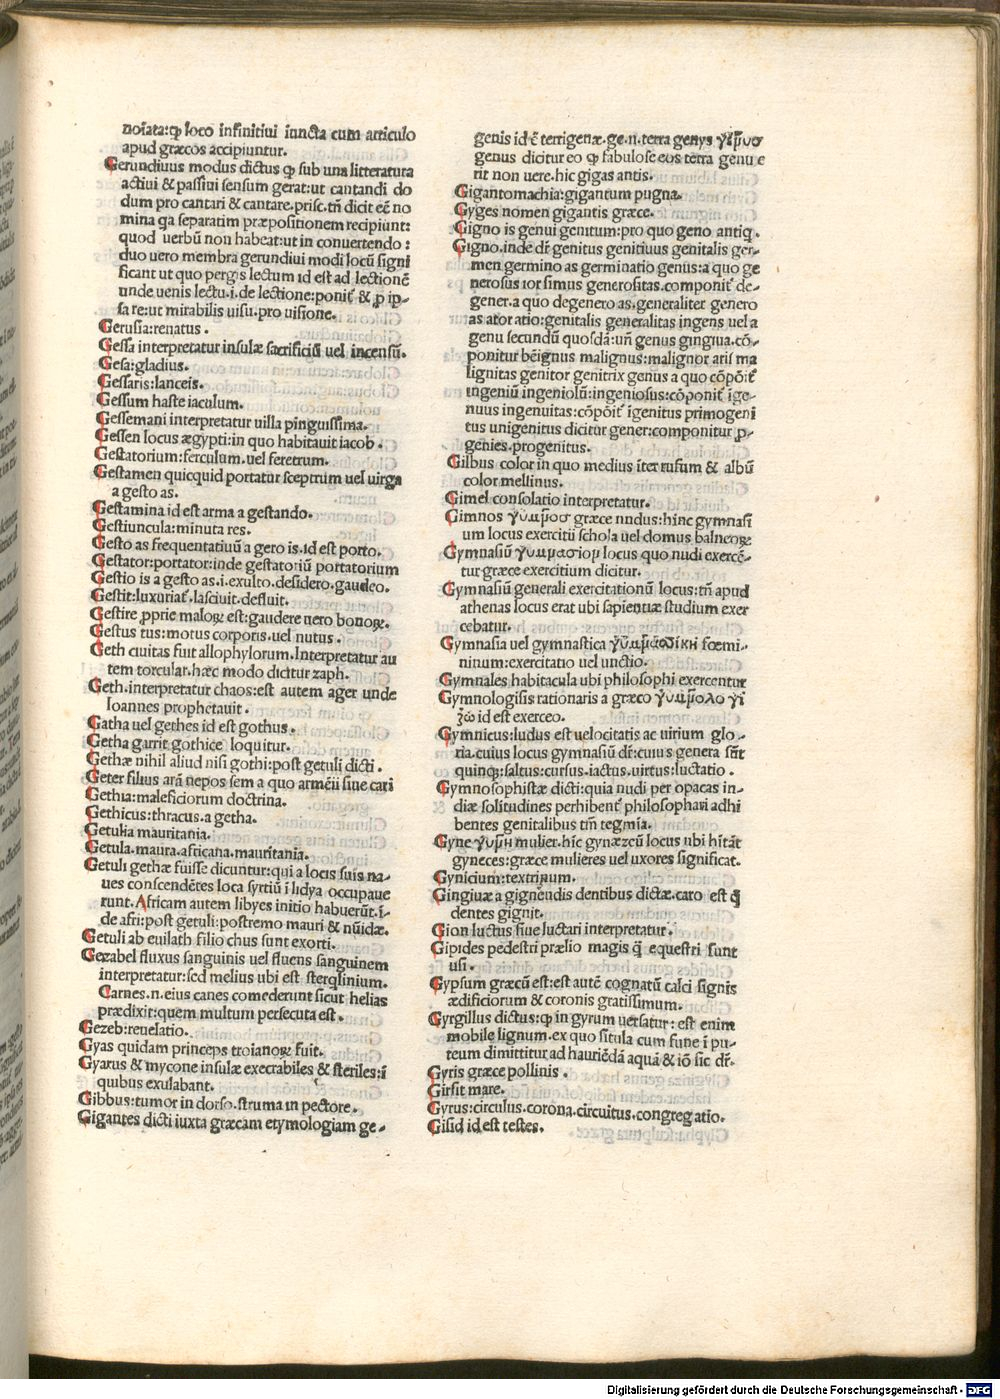 noīata:ꝙ loco infinitiui iuncta cum articulo
apud græcos accipiuntur.
Gerundiuus modus dictus ꝙ sub una litteratura
actiui & passiui sensum gerat:ut cantandi do
dum pro cantari & cantare.prisc.tñ dicit eē no
mina qa separatim præpositionem recipiunt:
quod uerbū non habeat:ut in conuertendo :
duo uero membra gerundiui modi locū signi
ficant ut quo pergis lectum id est ad lectionē
unde uenis lectu.i.de lectione:ponit̄ & ꝓ ip-
sa re:ut mirabilis uisu.pro uisione.
Gerusia:renatus .
Gessa interpretatur insulæ sacrificiū uel incensū.
Gesa:gladius.
Gessaris:lanceis.
Gessum haste iaculum.
Gessemani interpretatur uilla pinguissima.
Gessen locus ægypti:in quo habitauit iacob .
Gestatorium:ferculum.uel feretrum.
Gestamen quicquid portatur sceptrum uel uirga
a gesto as.
Gestamina id est arma a gestando.
Gestiuncula:minuta res.
Gesto as frequentatiuū a gero is.id est porto.
Gestator:portator:inde gestatoriū portatorium
Gestio is a gesto as.i.exulto.desidero.gaudeo.
Gestit:luxuriat̄.lasciuit.defluit.
Gestire ꝓprie maloꝝ est:gaudere uero bonoꝝ.
Gestus tus:motus corporis.uel nutus .
Geth ciuitas fuit allophylorum.Interpretatur au
tem torcular.hæc modo dicitur zaph.
Geth.interpretatur chaos:est autem ager unde
Ioannes prophetauit .
Gatha uel gethes id est gothus .
Getha garrit gothice loquitur.
Gethæ nihil aliud nisi gothi:post getuli dicti .
Geter filius arā nepos sem a quo armēii siue cari
Gethia:maleficiorum doctrina.
Gethicus:thracus.a getha.
Getulia mauritania.
Getula.maura.africana.mauritania.
Getuli gethæ fuisse dicuntur:qui a locis suis na-
ues conscendētes loca syrtiū i lidya occupaue
runt.Africam autem libyes initio habuerūt.ī-
de afri:post getuli:postremo mauri & nūidæ.
Getuli ab euilath filio chus sunt exorti.
Gezabel fluxus sanguinis uel fluens sanguinem
interpretatur:sed melius ubi est sterqlinium.
Carnes.n.eius canes comederunt sicut helias
prædixit:quem multum persecuta est .
Gezeb:reuelatio.
Gyas quidam princeps troianoꝝ fuit.
Gyarus & mycone insulæ execrabiles & steriles:ī
quibus exulabant.
Gibbus:tumor in dorso.struma in pectore.
Gigantes dicti iuxta græcam etymologiam ge-
genis id ē terrigenæ.ge.n.terra genys
genus dicitur eo ꝙ fabulose eos terra genu e
rit non uere.hic gigas antis.
Gigantomachia:gigantum pugna.
Gyges nomen gigantis græce.
Gigno is genui genitum:pro quo geno antiq.
Gigno.inde dr̄ genitus genitiuus genitalis ger-
men germino as germinatio genus:a quo ge
nerosus ior simus generositas.componit̄ de-
gener.a quo degenero as.generaliter genero
as ator atio:genitalis generalitas ingens uel a
genu secundū quosdā:uñ genus gingiua.cō-
ponitur bēignus malignus:malignor aris ma
lignitas genitor genitrix genus a quo cōpōit̄
ingeniū ingeniolū:ingeniosus:cōponit̄ īge-
nuus ingenuitas:cōpōit̄ īgenitus primogeni
tus unigenitus dicitur gener:componitur ꝓ-
genies.progenitus.
Gilbus color in quo medius īter rufum & albū
color mellinus.
Gimel consolatio interpretatur.
Gimnos γύμμοσ græce nndus:hinc gymnasi
um locus exercitii schola uel domus balneoꝝ
Gymnasiū γυμμασιομ locus quo nudi exercē-
tur græce exercitium dicitur.
Gymnasiū generali exercitationū locus:tñ apud
athenas locus erat ubi sapientiæ studium exer
cebatur.
Gymnasia uel gymnastica fœmi-
ninum:exercitatio uel unctio.
Gymnales habitacula ubi philosophi exercentur
Gymnologisis rationaris a græco γυμμολο γί
ζω id est exerceo.
Gymnicus:ludus est uelocitatis ac uirium glo-
ria.cuius locus gymnasiū dr̄:cuius genera sūt
quinqꝫ:saltus:cursus.iactus.uirtus:luctatio .
Gymnosophistæ dicti:quia nudi per opacas in-
diæ solitudines perhibent̄ philosophari adhi
bentes genitalibus tm̄ tegmia.
Gyne γυμη mulier.hic gynæzeū locus ubi hītāt
gyneces:græce mulieres uel uxores significat.
Gynicium:textrinum.
Gingiuæ a gignēdis dentibus dictæ.cato est ꝗ
dentes gignit.
Gion luctus siue luctari interpretatur.
Gipides pedestri prælio magis ꝗ̄ equestri sunt
usi.
Gypsum græcū est:est autē cognatū calci signis
ædificiorum & coronis gratissimum.
Gyrgillus dictus:ꝙ in gyrum uersatur: est enim
mobile lignum.ex quo situla cum fune ī pu-
teum dimittitur ad hauriēdā aquā & iō sic dr̄.
Gyris græce pollinis .
Girsit mare.
Gyrus:circulus.corona.circuitus.congregatio.
Gisid id est testes.
Digitalisierung gefördert durch die Deutsche Forschungsgemeinschaft - DFG